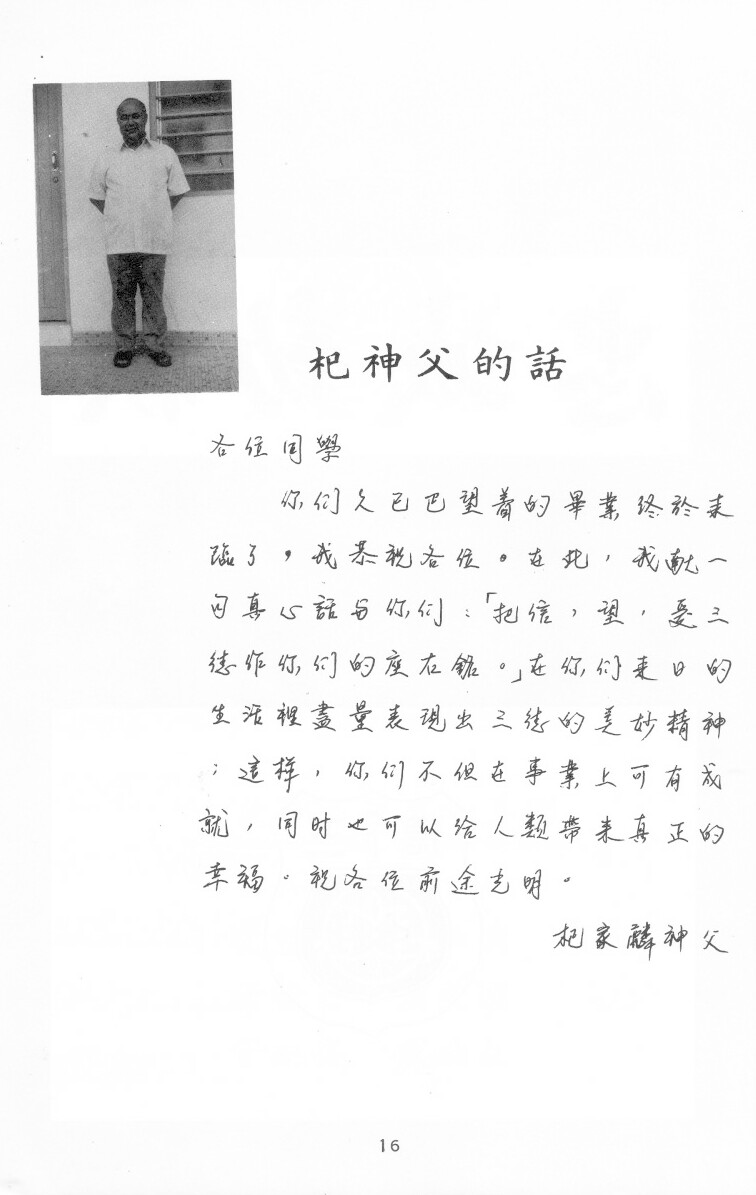 杞神父的話
各位同學
你们久已巴望着的畢業终於来
臨了，我恭祝各位。在此，我献一
句真心話与你们：「把信，望，爱三
德作你们的座右銘。」在你们来日的
生活裡盡量表现出三德的美妙精神
；這样，你们不但在事業上可有成
就，同时也可以给人類帶来真正的
幸福。祝各位前途光明。
杞家麟神父
16